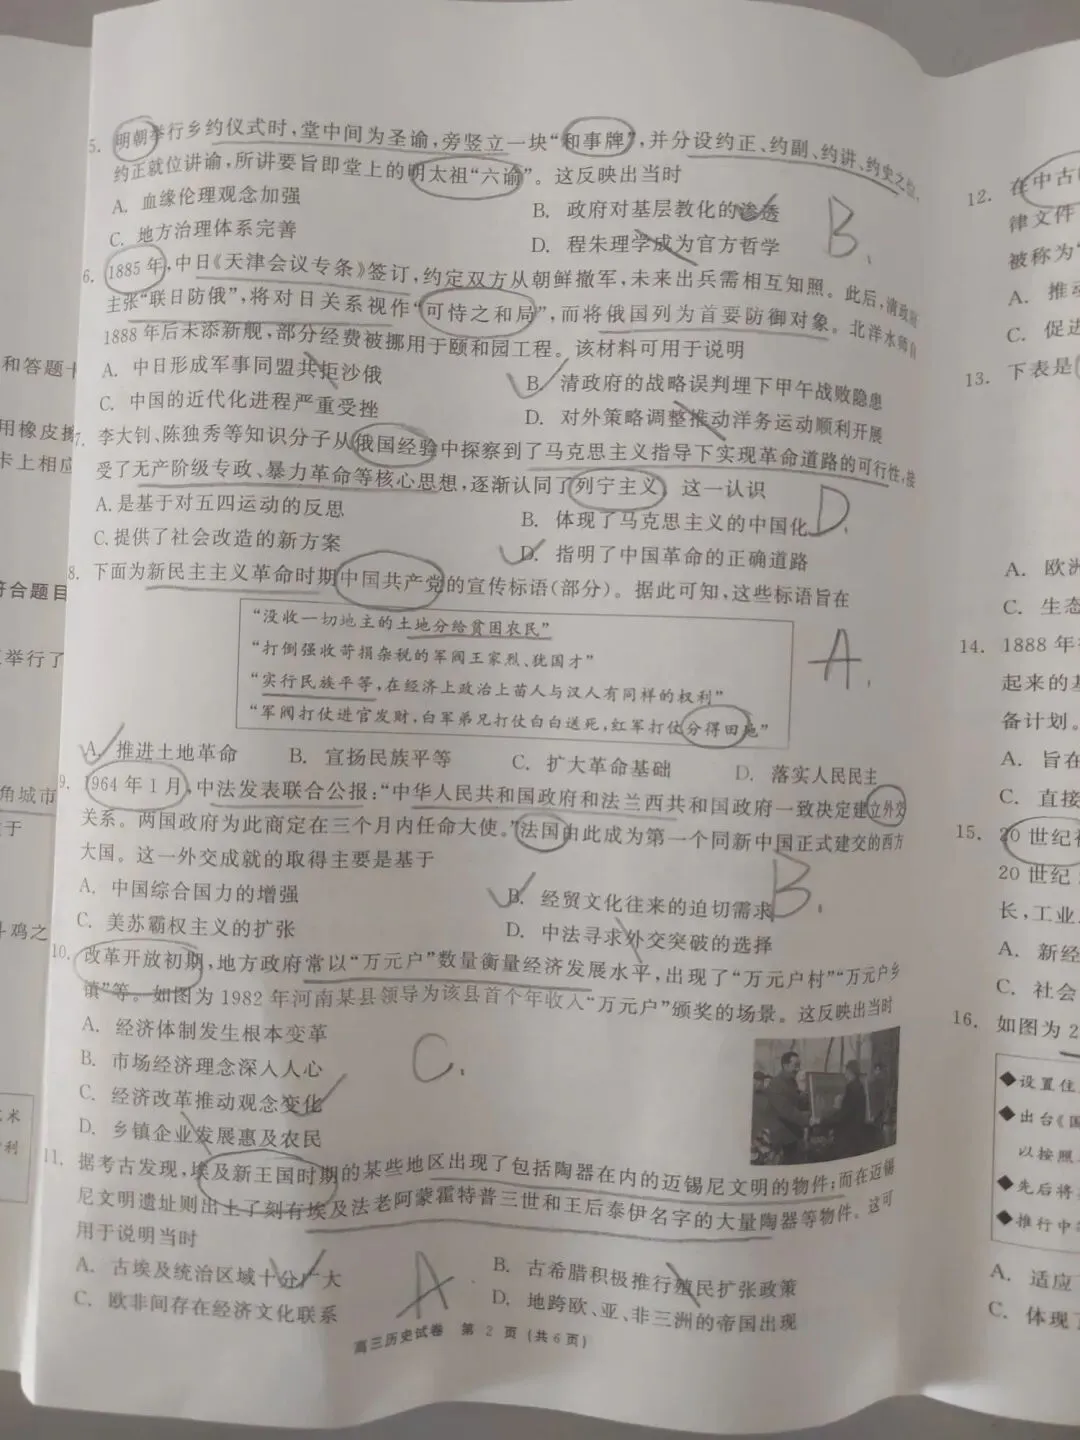 5. 明朝举行乡约仪式时，堂中间为圣谕，旁竖立一块“和事牌”，并分设约正、约副、约讲、约史之位，
约正就位讲谕，所讲要旨即堂上的明太祖“六谕”。这反映出当时
A. 血缘伦理观念加强
B. 政府对基层教化的渗透
B.
C. 地方治理体系完善
D. 程朱理学成为官方哲学
6. 1885年，中日《天津会议专条》签订，约定双方从朝鲜撤军，未来出兵需相互知照。此后，清政府
主张“联日防俄”，将对日关系视作“可恃之和局”，而将俄国列为首要防御对象。北洋水师自
1888年后未添新舰，部分经费被挪用于颐和园工程。该材料可用于说明
A. 中日形成军事同盟共拒沙俄
B. 清政府的战略误判埋下甲午战败隐患
C. 中国的近代化进程严重受挫
D. 对外策略调整推动洋务运动顺利开展
7. 李大钊、陈独秀等知识分子从俄国经验中探察到了马克思主义指导下实现革命道路的可行性，接
受了无产阶级专政、暴力革命等核心思想，逐渐认同了列宁主义。这一认识
A. 是基于对五四运动的反思
B. 体现了马克思主义的中国化
D.
C. 提供了社会改造的新方案
D. 指明了中国革命的正确道路
8. 下面为新民主主义革命时期中国共产党的宣传标语(部分)。据此可知，这些标语旨在
“没收一切地主的土地分给贫困农民”
“打倒强收苛捐杂税的军阀王家烈、犹国才”
“实行民族平等，在经济上政治上苗人与汉人有同样的权利”
“军阀打仗进官发财，白军弟兄打仗白白送死，红军打仗分得田地”
A.
A. 推进土地革命
B. 宣扬民族平等
C. 扩大革命基础
D. 落实人民民主
9. 1964年1月，中法发表联合公报：“中华人民共和国政府和法兰西共和国政府一致决定建立外交
关系。两国政府为此商定在三个月内任命大使。”法国由此成为第一个同新中国正式建交的西方
大国。这一外交成就的取得主要是基于
A. 中国综合国力的增强
B. 经贸文化往来的迫切需求
B.
C. 美苏霸权主义的扩张
D. 中法寻求外交突破的选择
10. 改革开放初期，地方政府常以“万元户”数量衡量经济发展水平，出现了“万元户村”“万元户乡
镇”等。如图为1982年河南某县领导为该县首个年收入“万元户”颁奖的场景。这反映出当时
A. 经济体制发生根本变革
B. 市场经济理念深入人心
C. 经济改革推动观念变化
D. 乡镇企业发展惠及农民
C.
11. 据考古发现，埃及新王国时期的某些地区出现了包括陶器在内的迈锡尼文明的物件；而在迈锡
尼文明遗址则出土了刻有埃及法老阿蒙霍特普三世和王后泰伊名字的大量陶器等物件。这可
用于说明当时
A. 古埃及统治区域十分广大
B. 古希腊积极推行殖民扩张政策
A
C. 欧非间存在经济文化联系
D. 地跨欧、亚、非三洲的帝国出现
高三历史试卷 第2页(共6页)
和答题卡
用橡皮擦
卡上相应
符合题目
举行了
角城市
于
斗鸡之
术
利
12. 在中古
律文件
被称为“
A. 推动
C. 促进
13. 下表是
A. 欧洲
C. 生态
14. 1888年
起来的基
备计划。
A. 旨在
C. 直接
15. 20世纪
20世纪
长，工业
A. 新经
C. 社会
16. 如图为2
◆设置住
◆出台《国
以按照
◆先后将
◆推行中
A. 适应
C. 体现了